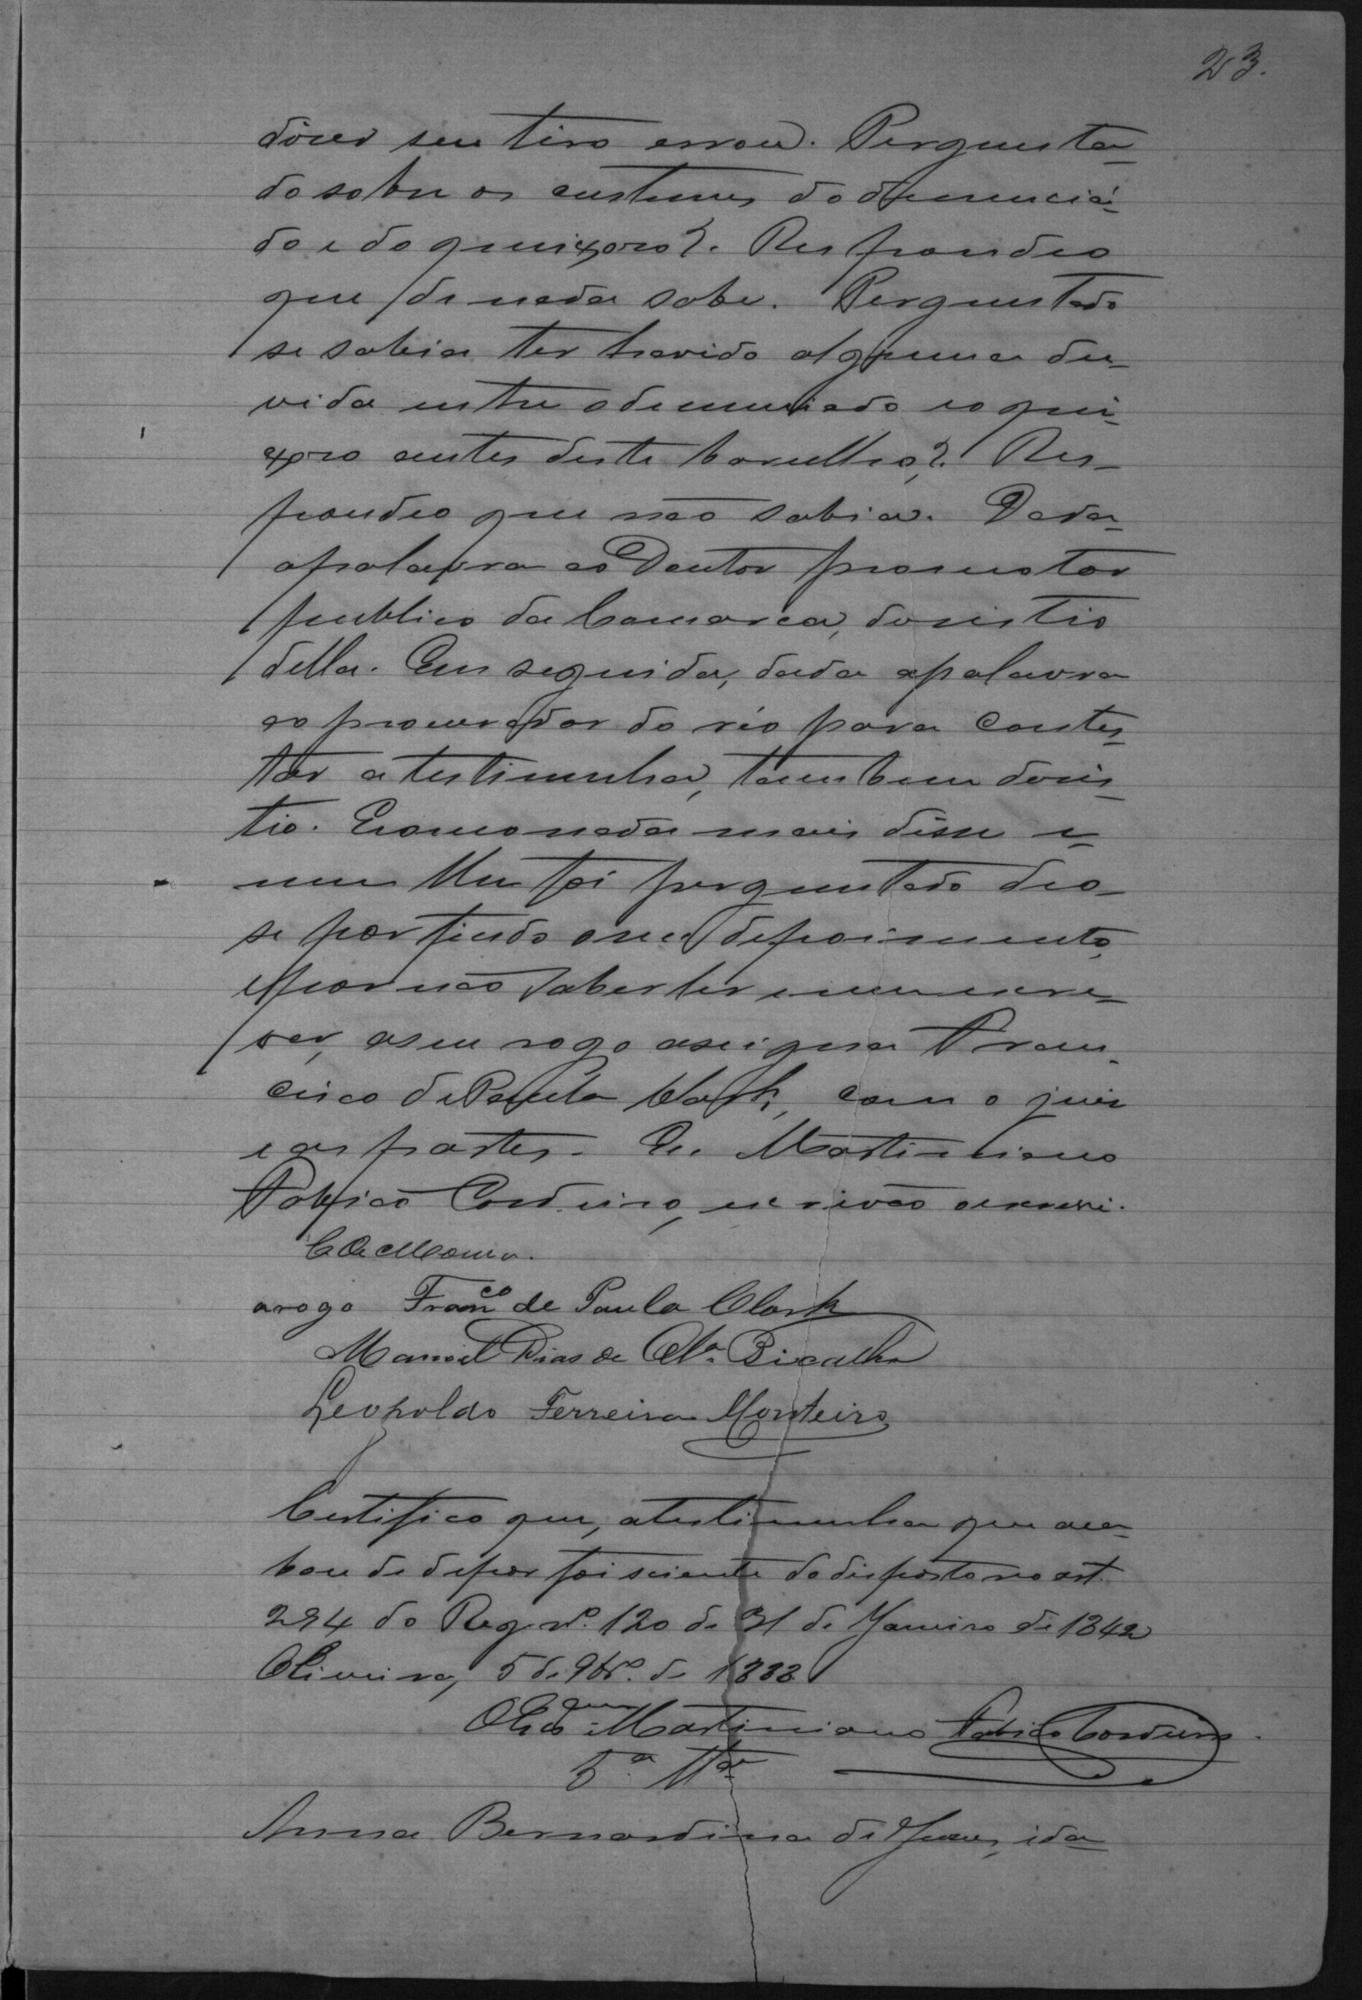 23.
seu tiro errou. Pergunta-
do sobre os custumes do denuncia-
do e do queixozo?. Respondeo
que de nada sabe. Perguntado
se sabia ter havido alguma du-
vida entre o denunciado e o quei-
xozo antes deste barulho?. Res-
pondeo que não sabia. Dada
a palavra ao Doutor promotor
publico da Comarca, desistio
della. Em seguida, dada a palavra
ao procurador do réo para contes-
tar a testimunha, tambem desis-
tio. E como nada mais disse e
nem lhe foi perguntado deo-
se por findo o seu depoimento,
e por não saber ler e nem escre-
ver, a seu rogo assigna Fran-
cisco de Paula Clark, com o juis
e as partes. Eu Martiniano
Fabricio Cordeiro, escrivão o escrevi.
arogo Franco de Paula Clark
Manoel Dias de Olª Bicalho
Leopoldo Ferreira Monteiro
Certifico que, a testimunha que aca-
bou de depor foi sciente do disposto no art.
294 do Reg. nº. 120 de 31 de Janeiro de 1842
Oliveira, 5 de 9brº. de 1888
Martiniano Fabricio Cordeiro
5ª. Ttª
Anna Bernardina de Jesus, ida-